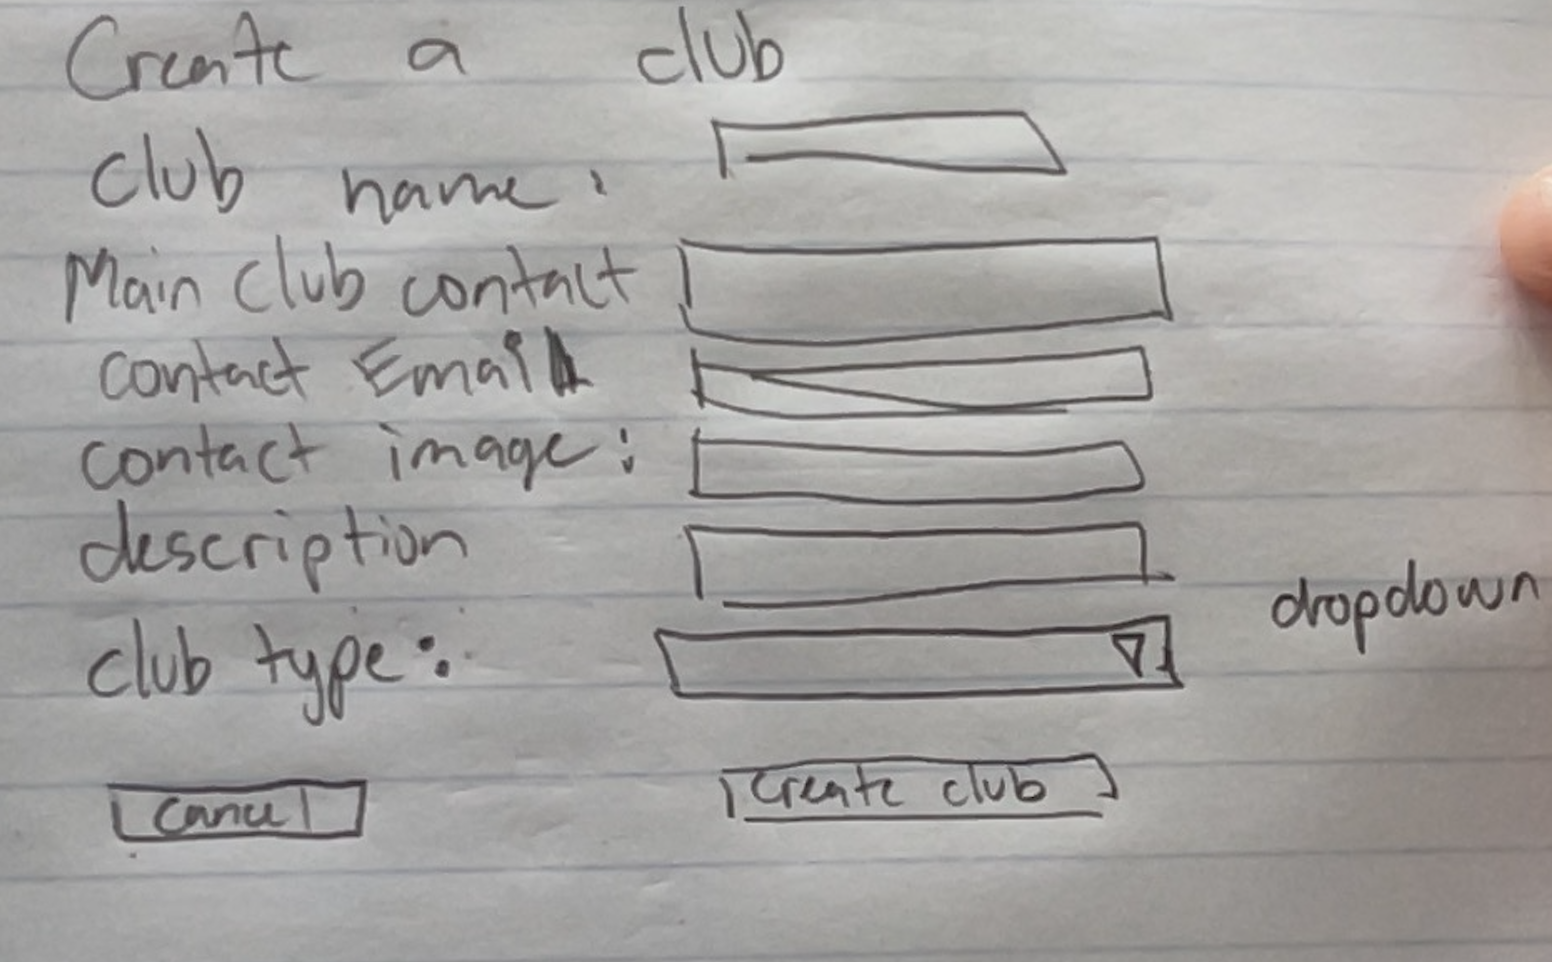 Create a club
club name:
Main club contact
contact Email
contact image:
description
club type:
dropdown
cancel
create club